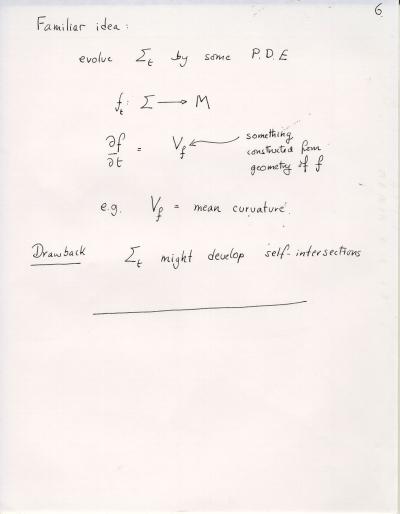 6
Familiar idea:
evolve Σ_t by some P.D.E
f_t: Σ ⟶ M
∂f/∂t = V_f ← something constructed from geometry of f
e.g. V_f = mean curvature.
Drawback Σ_t might develop self-intersections